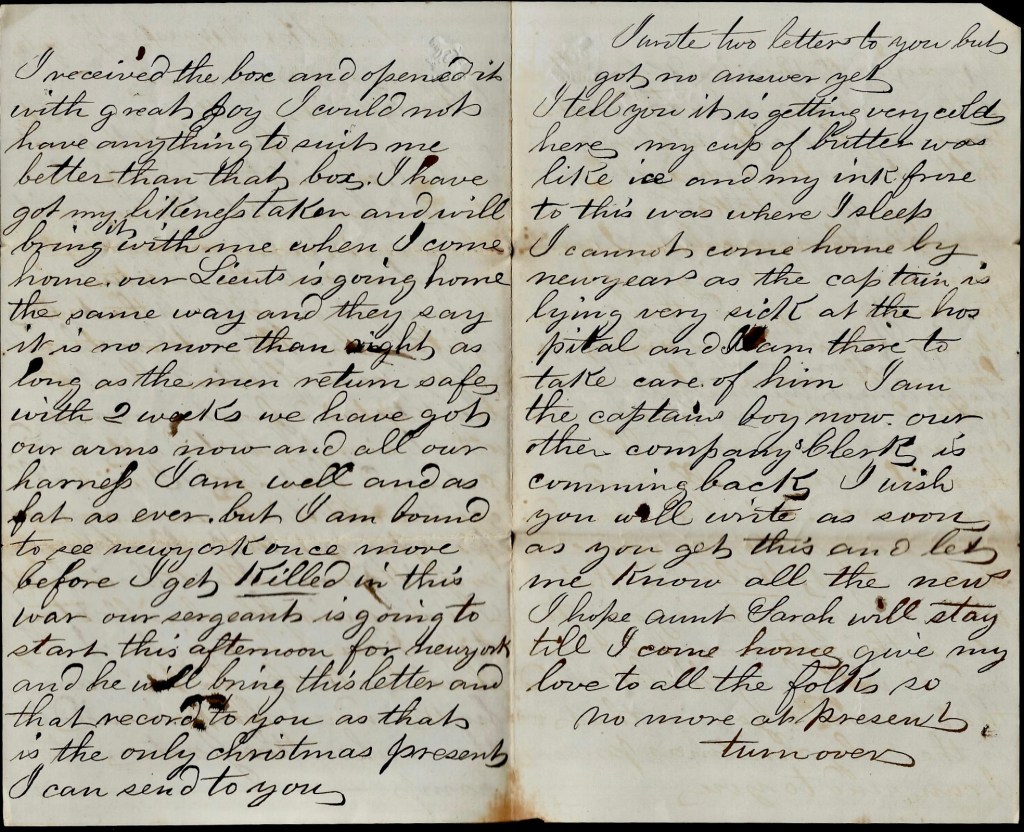 I received the box and opened it
with great Joy I could not
have anything to suit me
better than that box. I have
got my likeness taken and will
bring it with me when I come
home. our Lieuts is going home
the same way and they say
it is no more than right as
long as the men return safe
with 2 weeks we have got
our arms now and all our
harness I am well and as
fat as ever. but I am bound
to see newyork once more
before I get Killed in this
war our sergeant is going to
start this afternoon for newyork
and he will bring this letter and
that record to you as that
is the only christmas present
I can send to you
I wrote two letters to you but
got no answer yet
I tell you it is getting very cold
here my cup of butter was
like ice and my ink froze
to this was where I sleep
I cannot come home by
newyears as the captain is
lying very sick at the hos
pital and I am there to
take care of him I am
the captains boy now. our
other company's Clerk is
comming back I wish
you will write as soon
as you get this and let
me know all the news
I hope aunt Sarah will stay
till I come home give my
love to all the folks so
no more at present
turn over